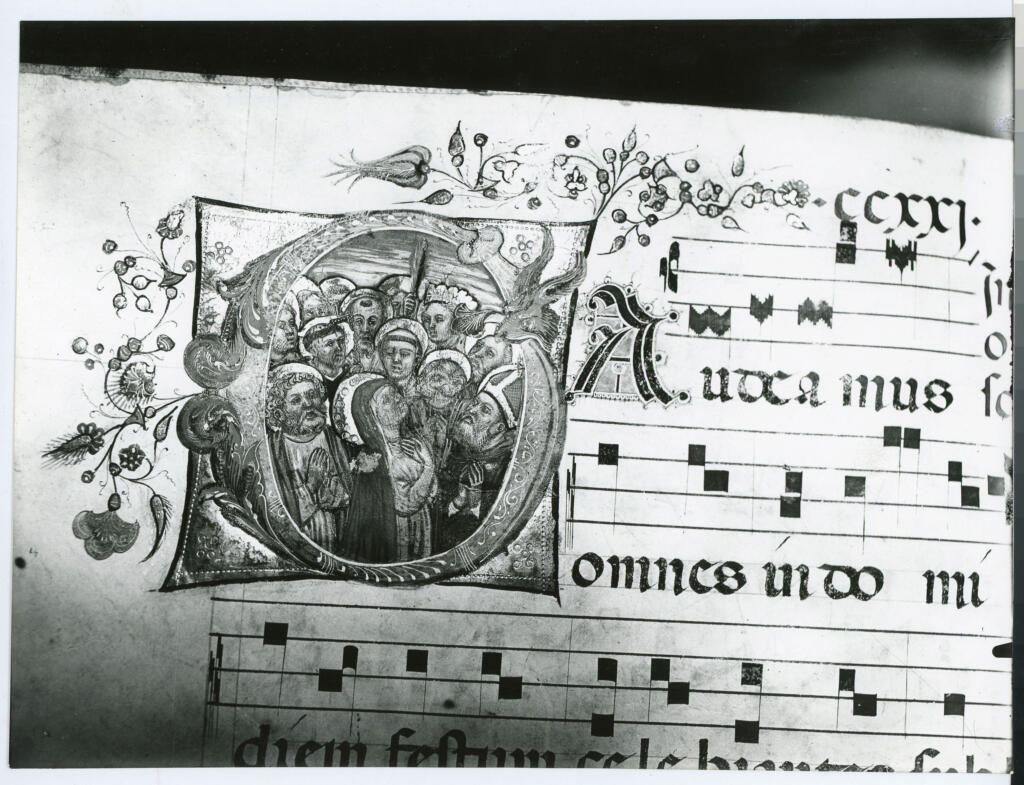 ·ccxxj·
Gaudea mus
omnes in do mi
diem festum cele brantes sub